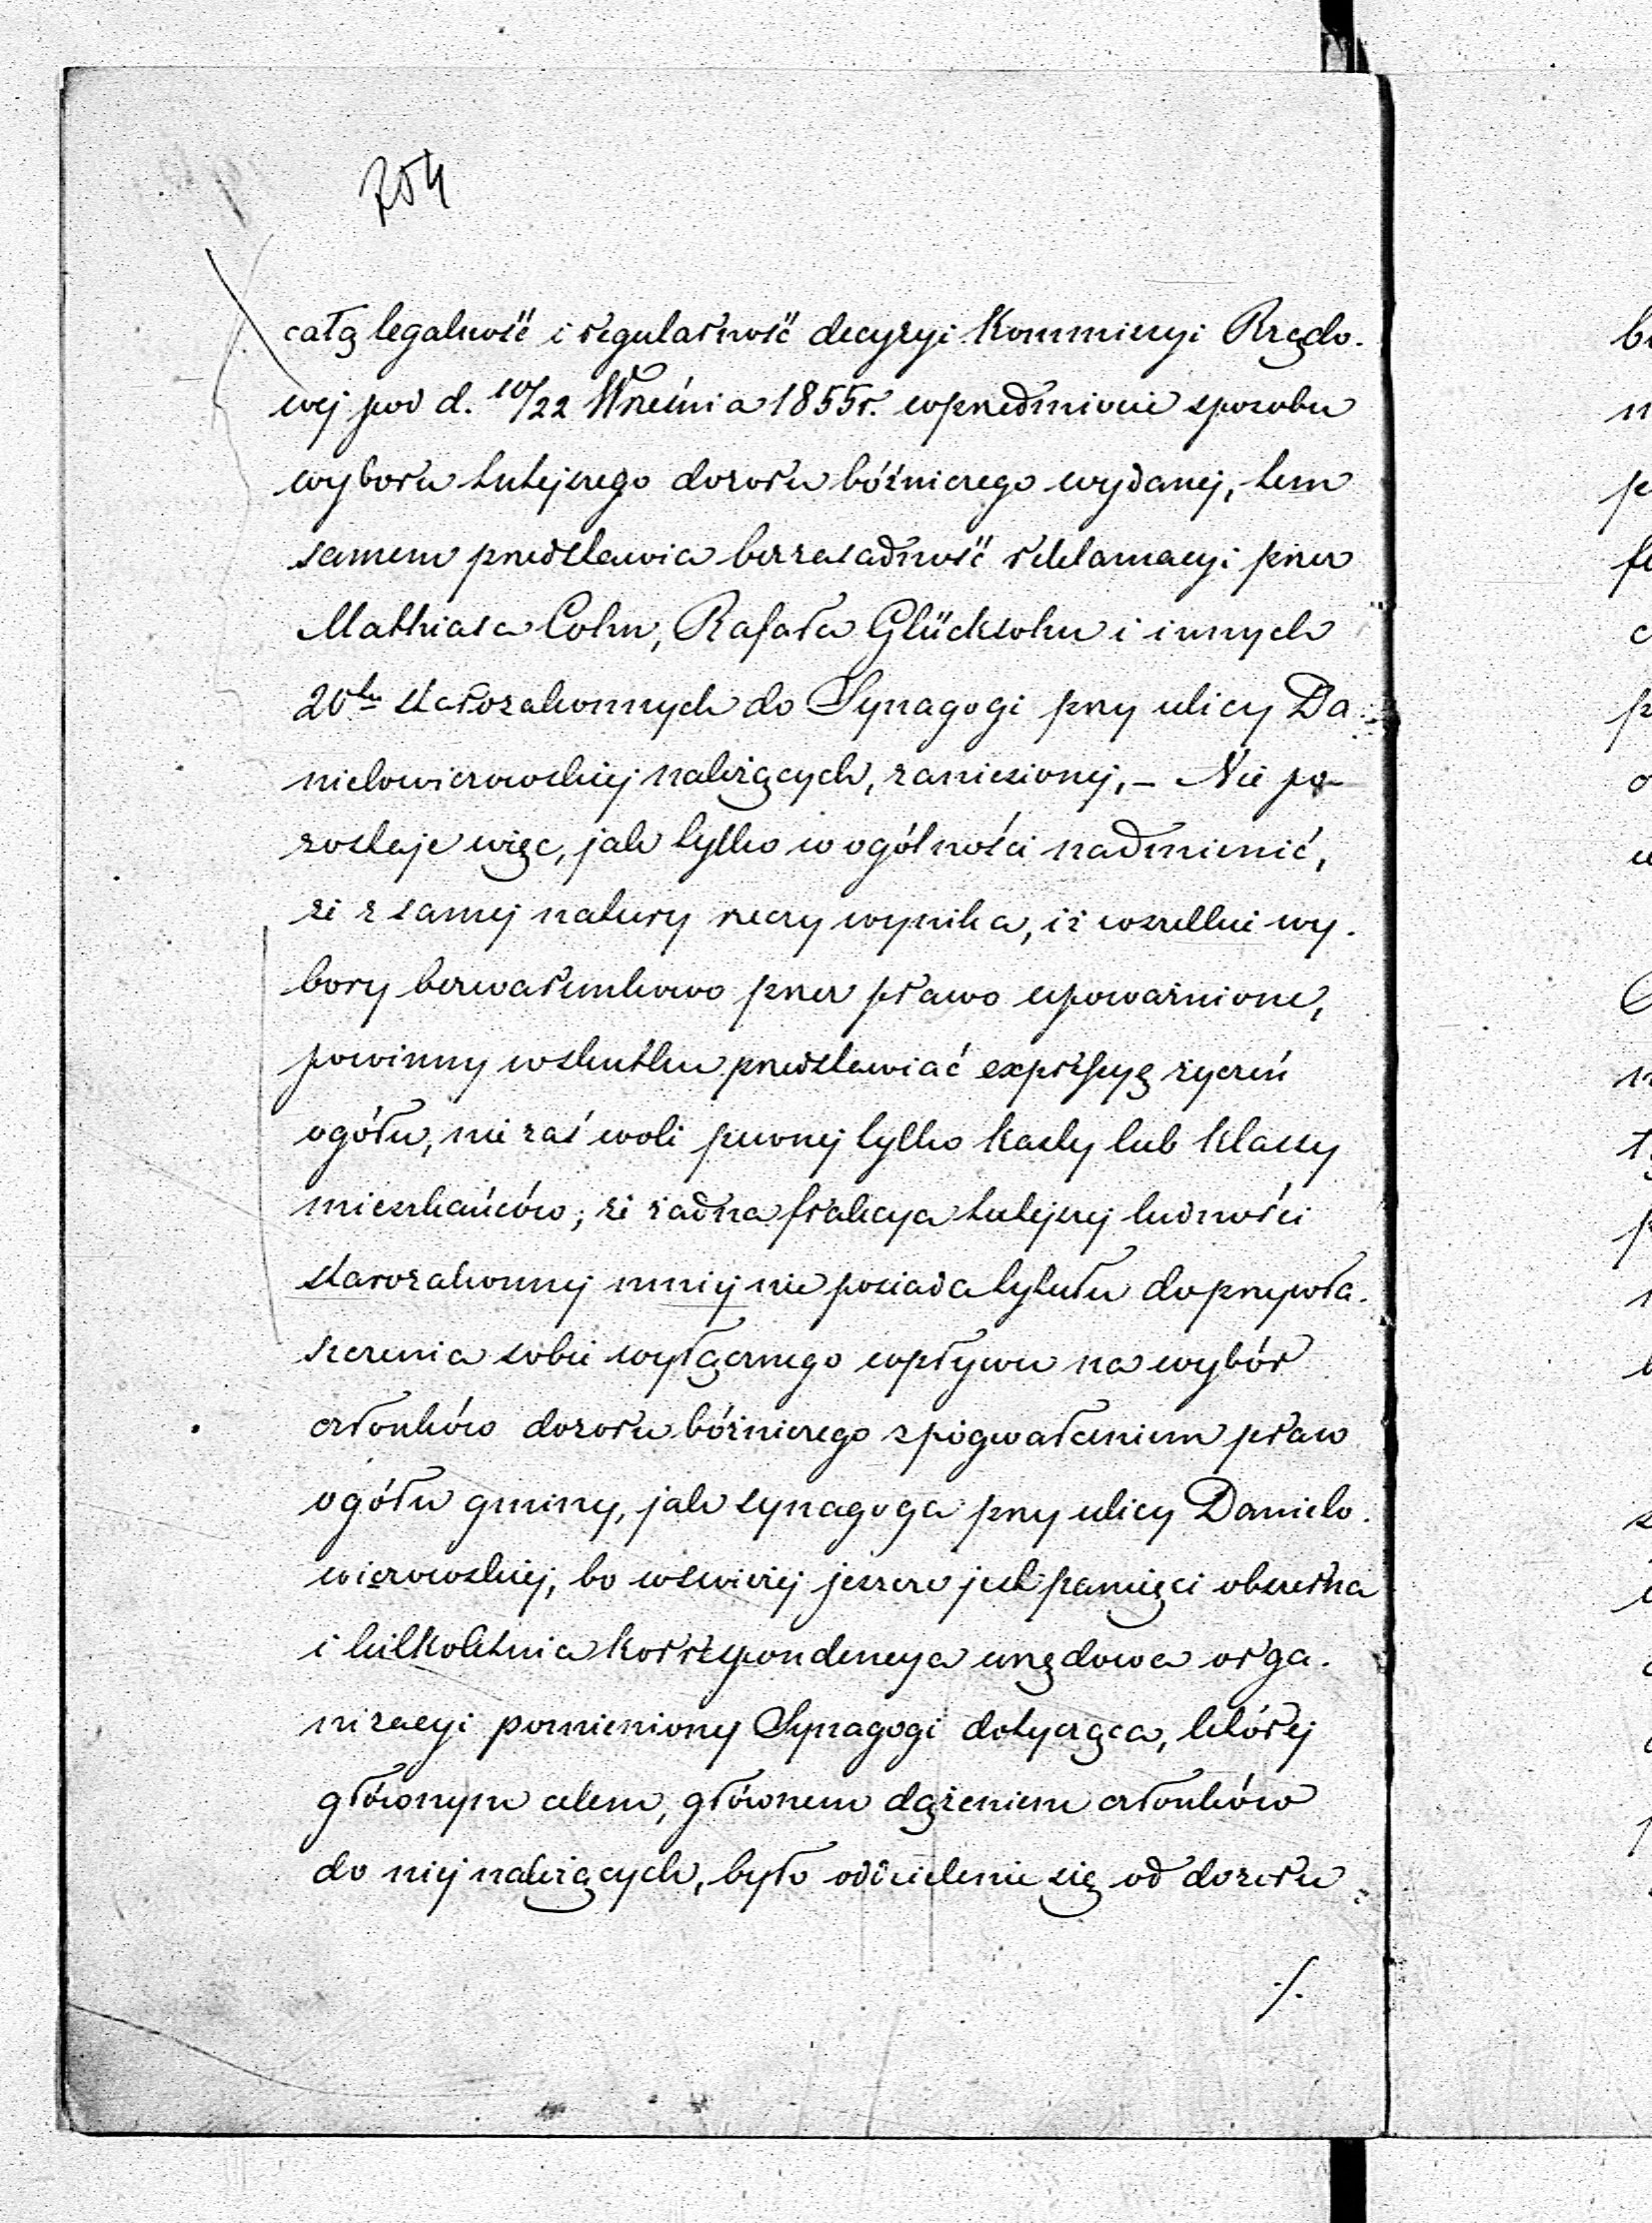 704
całą legalność i regularność decyzyi Kommissyi Rządo-
wej pod d. 10/22 Września 1855 r. w przedmiocie sposobu
wyboru tutejszego dozoru bóźniczego wydanej, tem
samem przedstawia bezzasadność reklamacyi przez
Mathiasa Cohn, Rafała Glücksohn i innych
20tu starozakonnych do Synagogi przy ulicy Da-
nielowiczowskiej należących, zaniesionej, – Nie po-
zostaje więc, jak tylko w ogólności nadmienić,
że z samej natury rzeczy wynika, iż wszelkie wy-
bory bezwarunkowo przez prawo upoważnione,
powinny w skutku przedstawiać expressyą życzeń
ogółu, nie zaś woli pewnej tylko kasty lub klassy
mieszkańców; że żadna frakcya tutejszej ludności
starozakonnej mniej nie posiada tytułu do przywła-
szczenia sobie wyłącznego wpływu na wybór
członków dozoru bóźniczego z pogwałceniem praw
ogółu gminy, jak synagoga przy ulicy Danielo-
wiczowskiej, bo w świeżej jeszcze jest pamięci obszerna
i kilkoletnia korrespondencya urzędowa orga-
nizacyi pomienionej Synagogi dotycząca, której
głównym celem, głównem dążeniem członków
do niej należących, było oddzielenie się od dozoru
./.